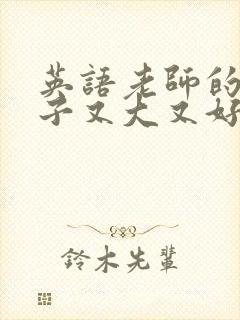 英語老師的
子又大又好
鈴木先輩